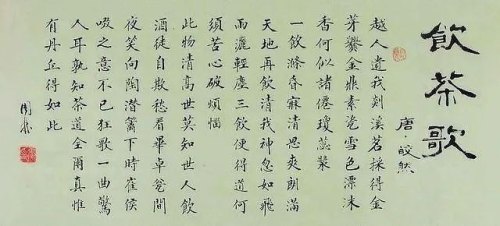 飲茶歌
唐 皎然
越人遺我剡溪茗採得金
芽爨金鼎素瓷雪色漂沫
香何似諸僊瓊蕊漿
一飲滌昏寐清思爽朗滿
天地再飲清我神忽如飛
雨灑輕塵三飲便得道何
須苦心破煩惱
此物清高世莫知世人飲
酒徒自欺愁看畢卓瓮間
夜笑向陶潛籬下時崔侯
啜之意不已狂歌一曲驚
人耳孰知茶道全爾真惟
有丹丘得如此